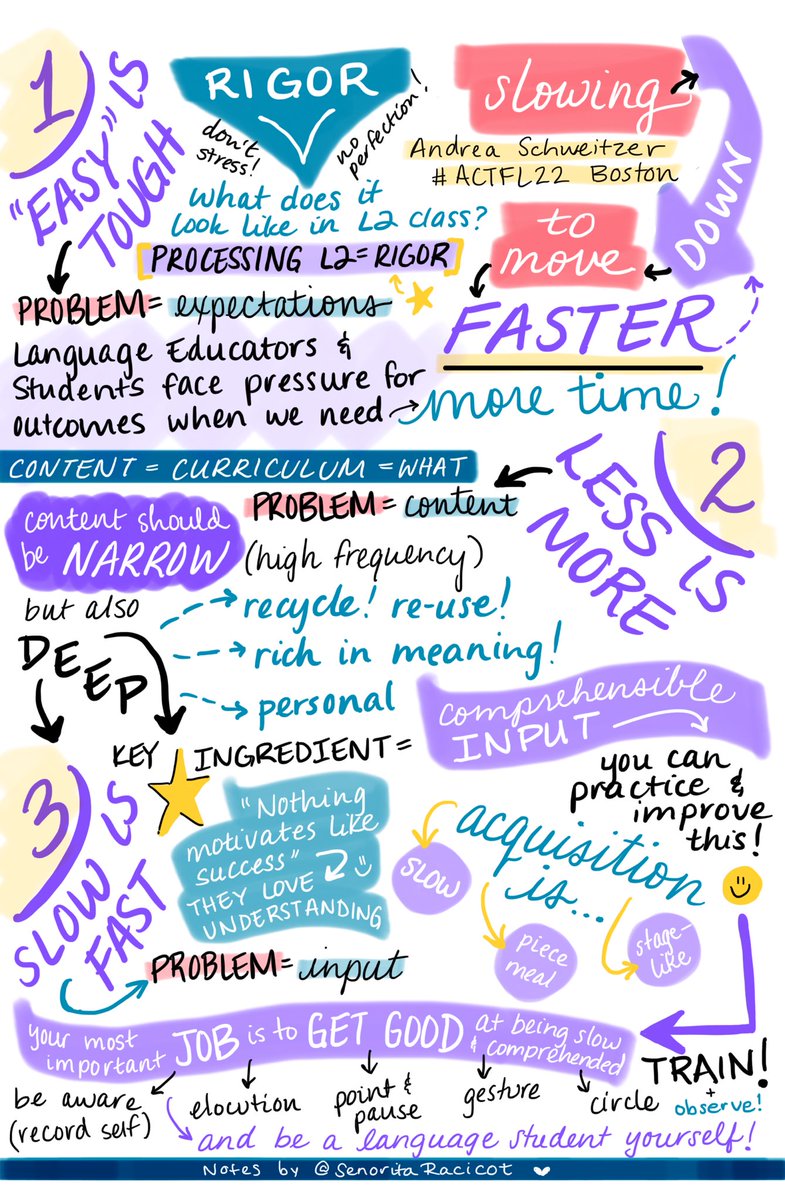 1
"EASY" IS
TOUGH
RIGOR
don't
stress!
no
perfection!
What does it
look like in L2 class?
PROCESSING L2=RIGOR
slowing
DOWN
Andrea Schweitzer
#ACTFL22 Boston
to
move
FASTER
PROBLEM= expectations
Language Educators &
Students face pressure for
outcomes when we need
more time!
CONTENT = CURRICULUM = WHAT
2
LESS IS
MORE
PROBLEM= content
content should
be NARROW
(high frequency)
but also
DEEP
recycle! re-use!
rich in meaning!
personal
KEY INGREDIENT =
comprehensible
INPUT
you can
practice &
improve
this!
3
SLOW IS
FAST
"Nothing
motivates like
success"
THEY LOVE
UNDERSTANDING
acquisition
is...
SLOW
piece
meal
stage-
like
PROBLEM= input
your most
important JOB is to GET GOOD at being slow
& comprehended
TRAIN!
+
observe!
be aware
(record self)
elocution
point &
pause
gesture
circle
and be a language student yourself!
Notes by @SenoritaRacicot